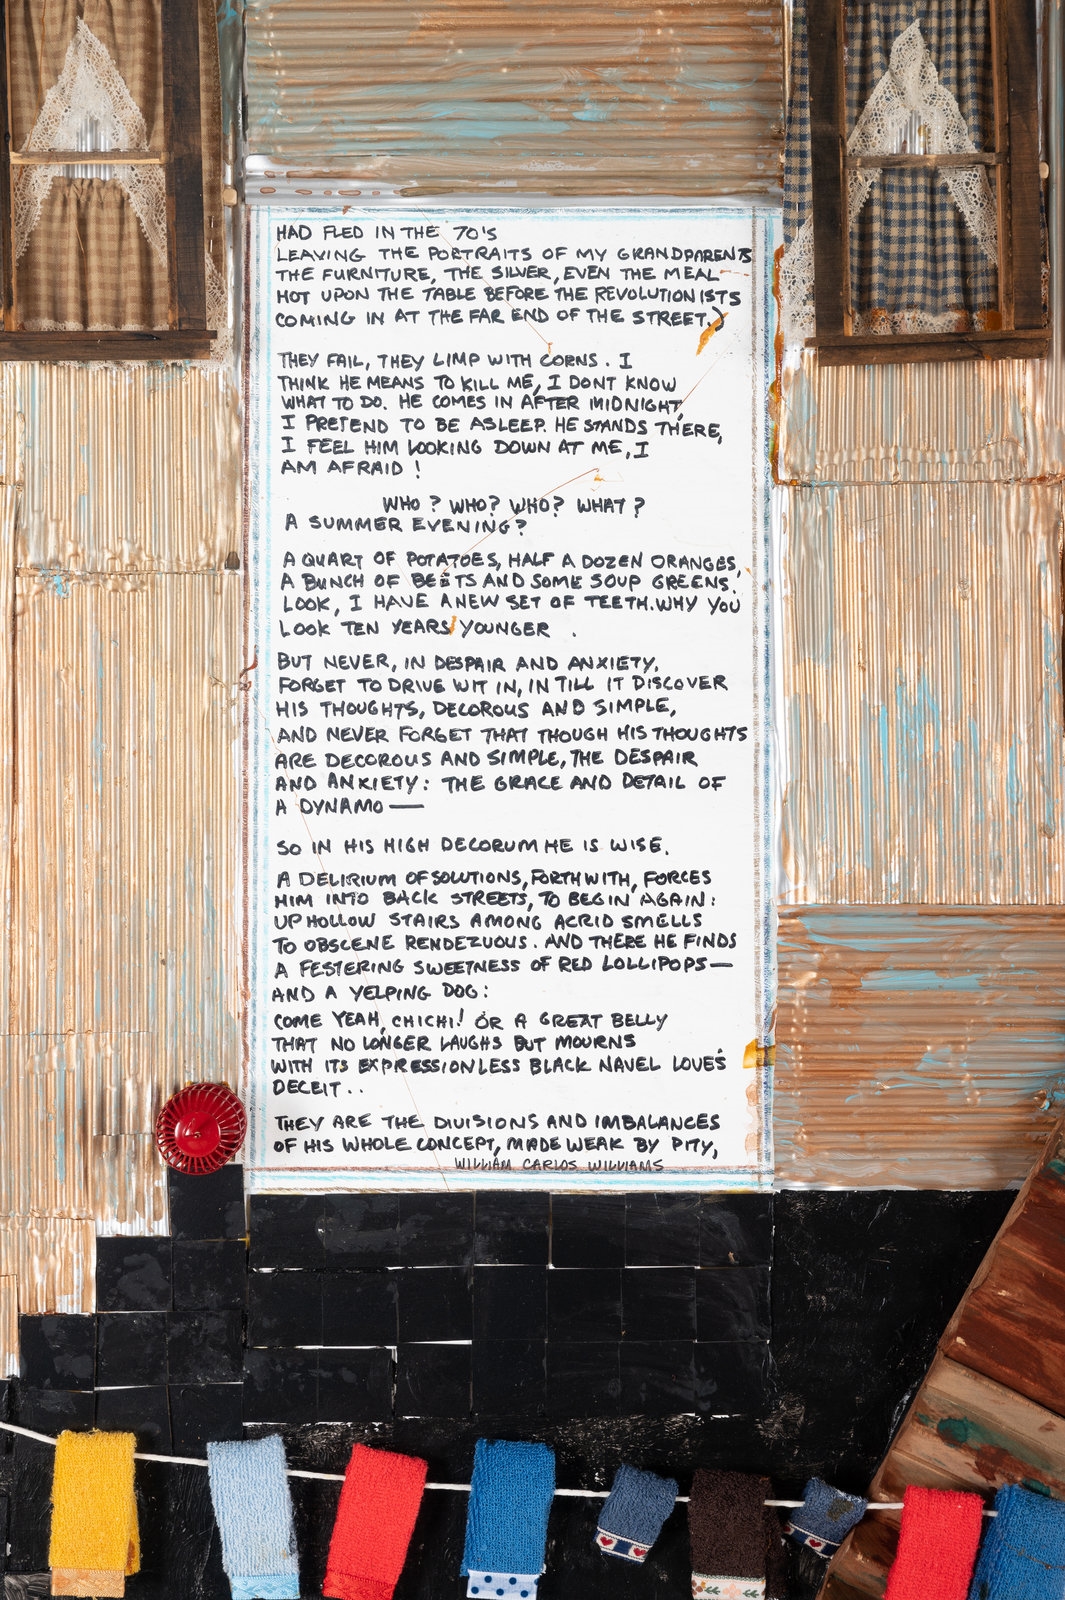 HAD FLED IN THE 70'S
LEAVING THE PORTRAITS OF MY GRANDPARENTS
THE FURNITURE, THE SILVER, EVEN THE MEAL
HOT UPON THE TABLE BEFORE THE REVOLUTIONISTS
COMING IN AT THE FAR END OF THE STREET.)
THEY FAIL, THEY LIMP WITH CORNS. I
THINK HE MEANS TO KILL ME, I DONT KNOW
WHAT TO DO. HE COMES IN AFTER MIDNIGHT,
I PRETEND TO BE ASLEEP. HE STANDS THERE,
I FEEL HIM LOOKING DOWN AT ME, I
AM AFRAID!
WHO? WHO? WHO? WHAT?
A SUMMER EVENING?
A QUART OF POTATOES, HALF A DOZEN ORANGES,
A BUNCH OF BEETS AND SOME SOUP GREENS.
LOOK, I HAVE A NEW SET OF TEETH. WHY YOU
LOOK TEN YEARS YOUNGER .
BUT NEVER, IN DESPAIR AND ANXIETY,
FORGET TO DRIVE WIT IN, IN TILL IT DISCOVER
HIS THOUGHTS, DECOROUS AND SIMPLE,
AND NEVER FORGET THAT THOUGH HIS THOUGHTS
ARE DECOROUS AND SIMPLE, THE DESPAIR
AND ANXIETY: THE GRACE AND DETAIL OF
A DYNAMO—
SO IN HIS HIGH DECORUM HE IS WISE.
A DELIRIUM OF SOLUTIONS, FORTHWITH, FORCES
HIM INTO BACK STREETS, TO BEGIN AGAIN:
UP HOLLOW STAIRS AMONG ACRID SMELLS
TO OBSCENE RENDEZUOUS. AND THERE HE FINDS
A FESTERING SWEETNESS OF RED LOLLIPOPS—
AND A YELPING DOG:
COME YEAH, CHICHI! OR A GREAT BELLY
THAT NO LONGER LAUGHS BUT MOURNS
WITH ITS EXPRESSIONLESS BLACK NAVEL LOVE'S
DECEIT..
THEY ARE THE DIVISIONS AND IMBALANCES
OF HIS WHOLE CONCEPT, MADE WEAK BY PITY,
WILLIAM CARLOS WILLIAMS